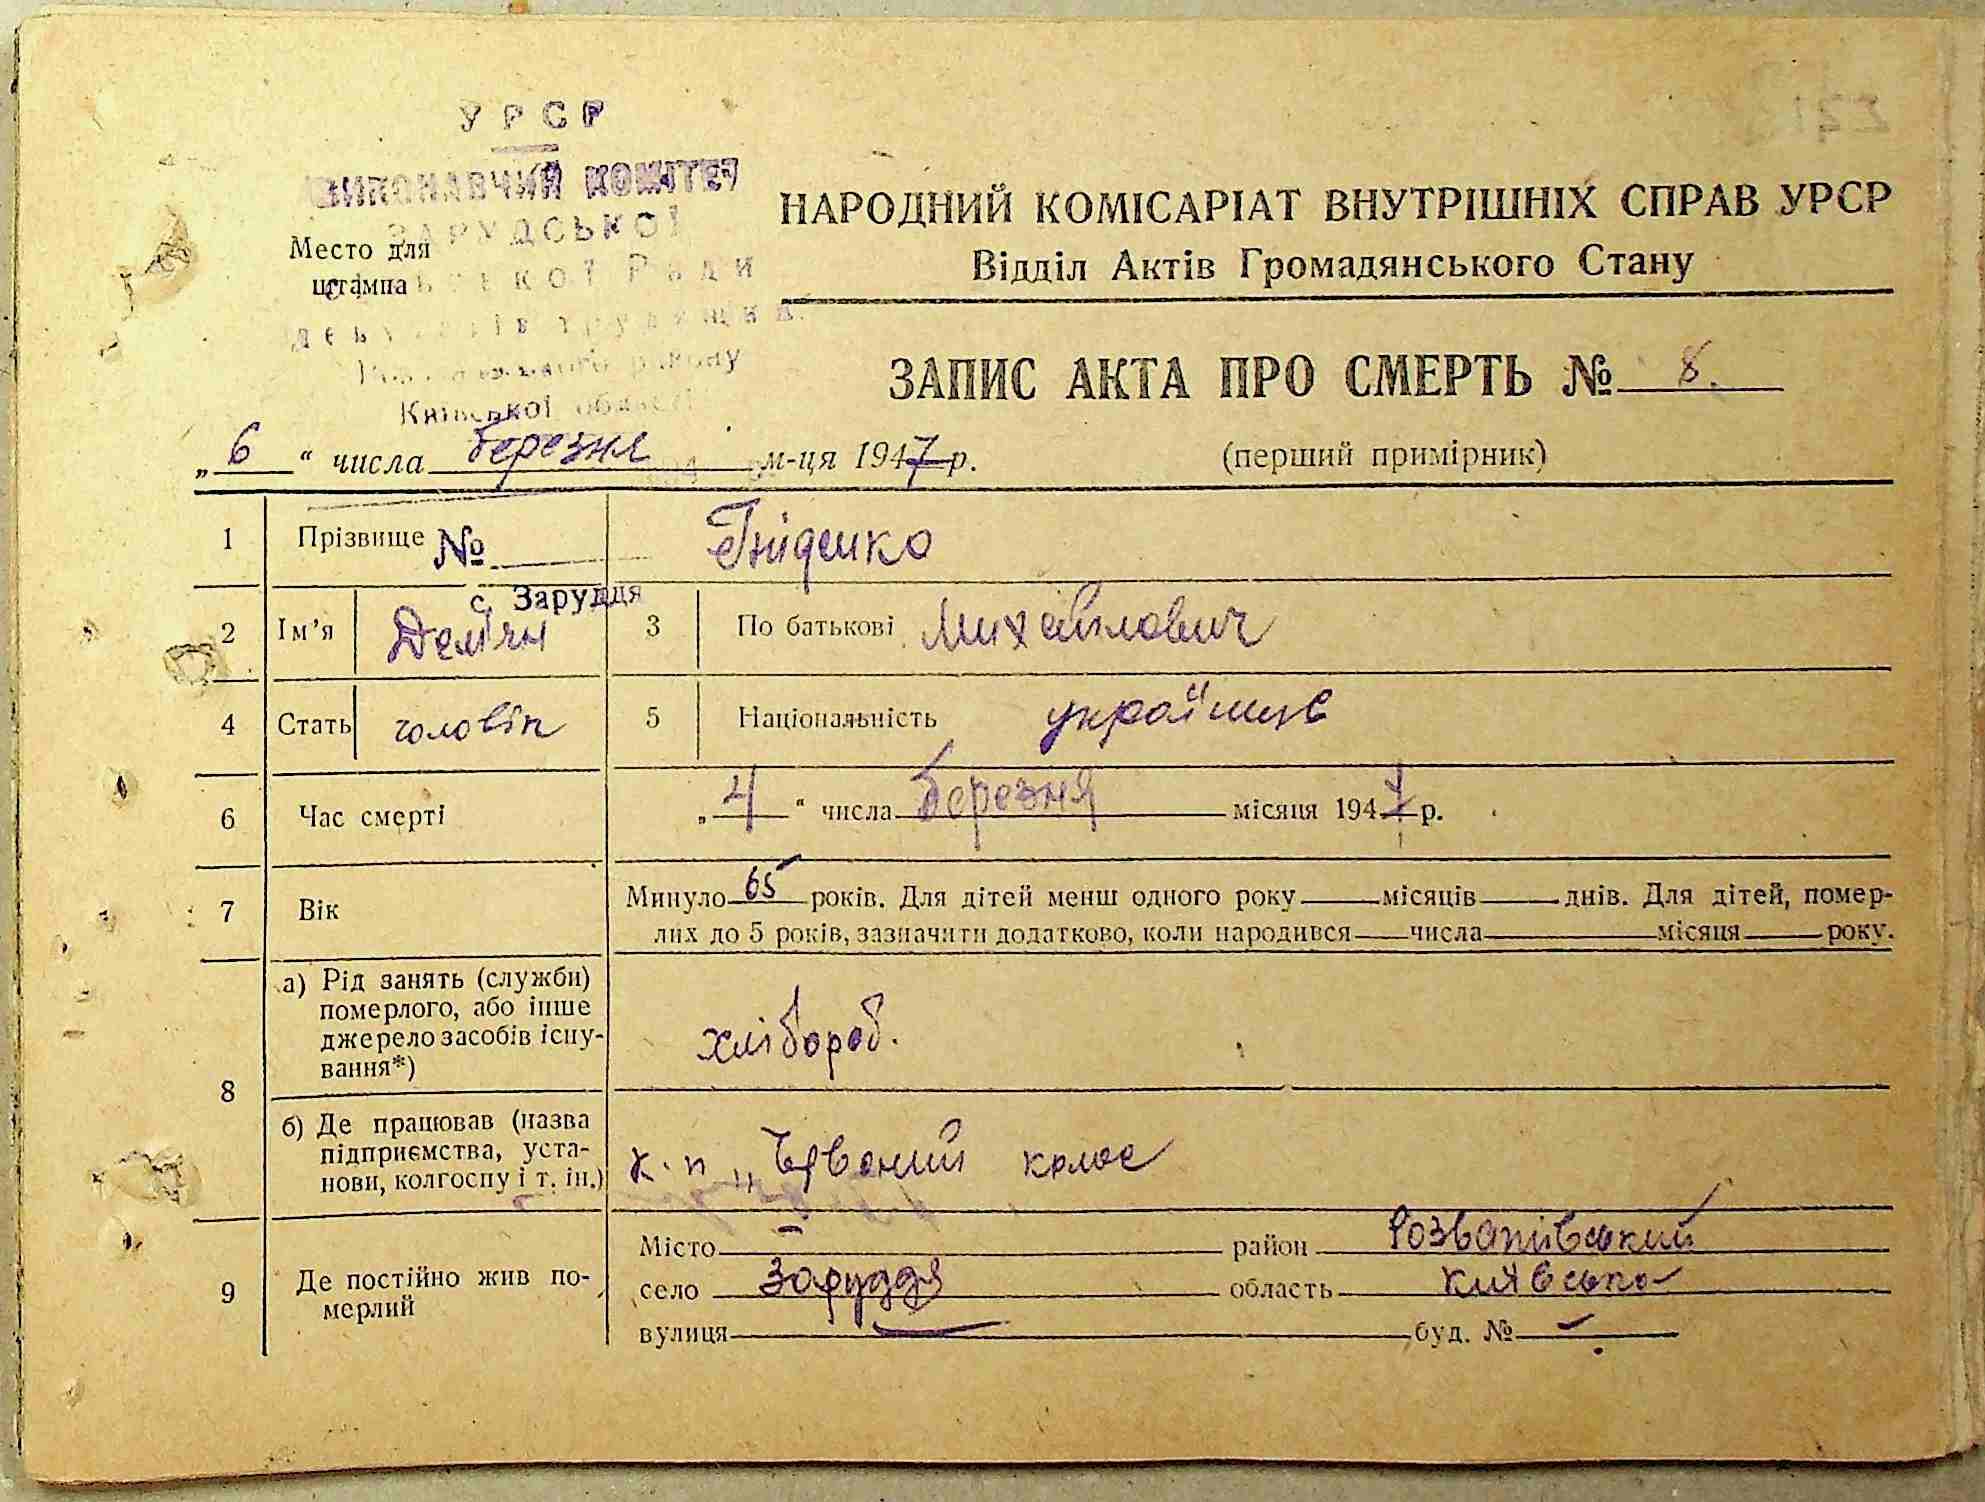 У Р С Р
ВИКОНАВЧИЙ КОМІТЕТ
ЗАРУДСЬКОЇ
Ради
Київської області
№
с. Заруддя
Место для
штампа
НАРОДНИЙ КОМІСАРІАТ ВНУТРІШНІХ СПРАВ УРСР
Відділ Актів Громадянського Стану
ЗАПИС АКТА ПРО СМЕРТЬ № 8.
„6“ числа березня м-ця 1947 р. (перший примірник)
1 Прізвище Гниденко
2 Ім’я Дем'ян 3 По батькові Михайлович
4 Стать чоловік 5 Національність українцв
6 Час смерті „4“ числа березня місяця 1947 р.
7 Вік Минуло 65 років. Для дітей менш одного року місяців днів. Для дітей, помер-
лих до 5 років, зазначити додатково, коли народився числа місяця року.
8 а) Рід занять (служби)
померлого, або інше
джерело засобів існу-
вання*)
хлібороб.
б) Де працював (назва
підприємства, уста-
нови, колгоспу і т. ін.)
к.п „Червоний колос
9 Де постійно жив по-
мерлий
Місто — район Розважівський
село Заруддя область київська
вулиця — буд. № —